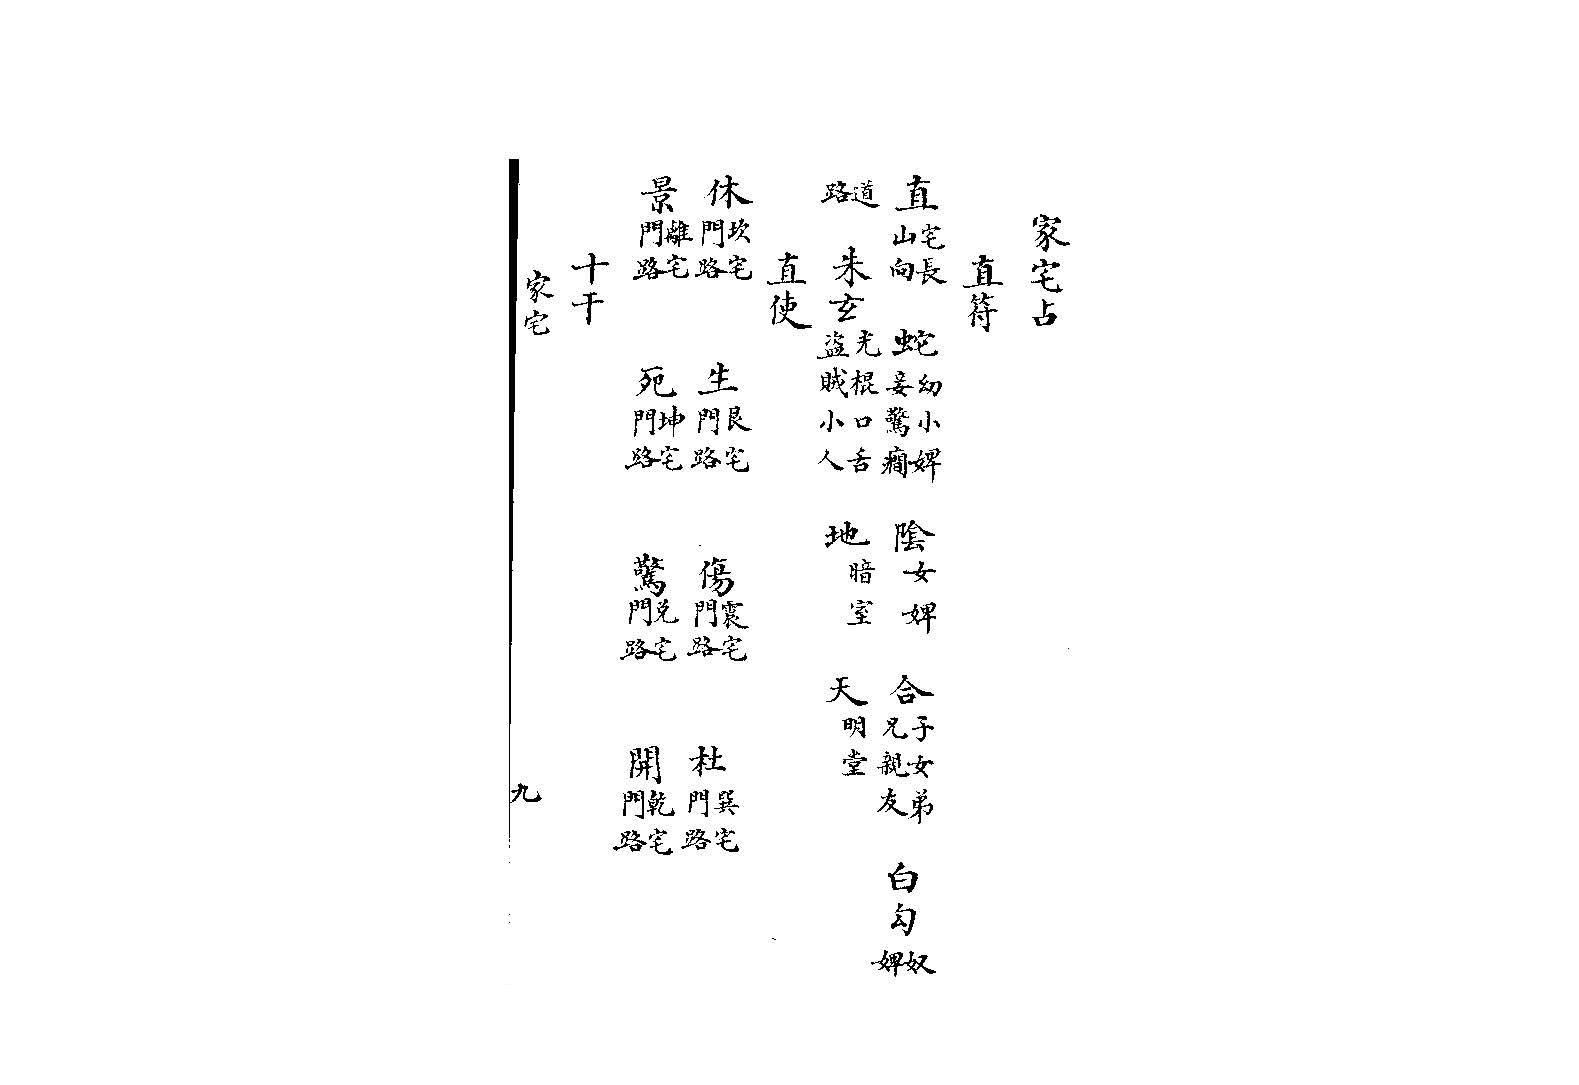 家宅占
直符
直 宅長山向 蛇 幼小婢妾驚癇 陰 女婢 合 子女弟兄親友 白勾 奴婢
道路 朱玄 光棍口舌盜賊小人 地 暗室 天 明堂
直使
休 坎宅門路 生 艮宅門路 傷 震宅門路 杜 巽宅門路
景 離宅門路 死 坤宅門路 驚 兑宅門路 開 乾宅門路
十干
家宅 九